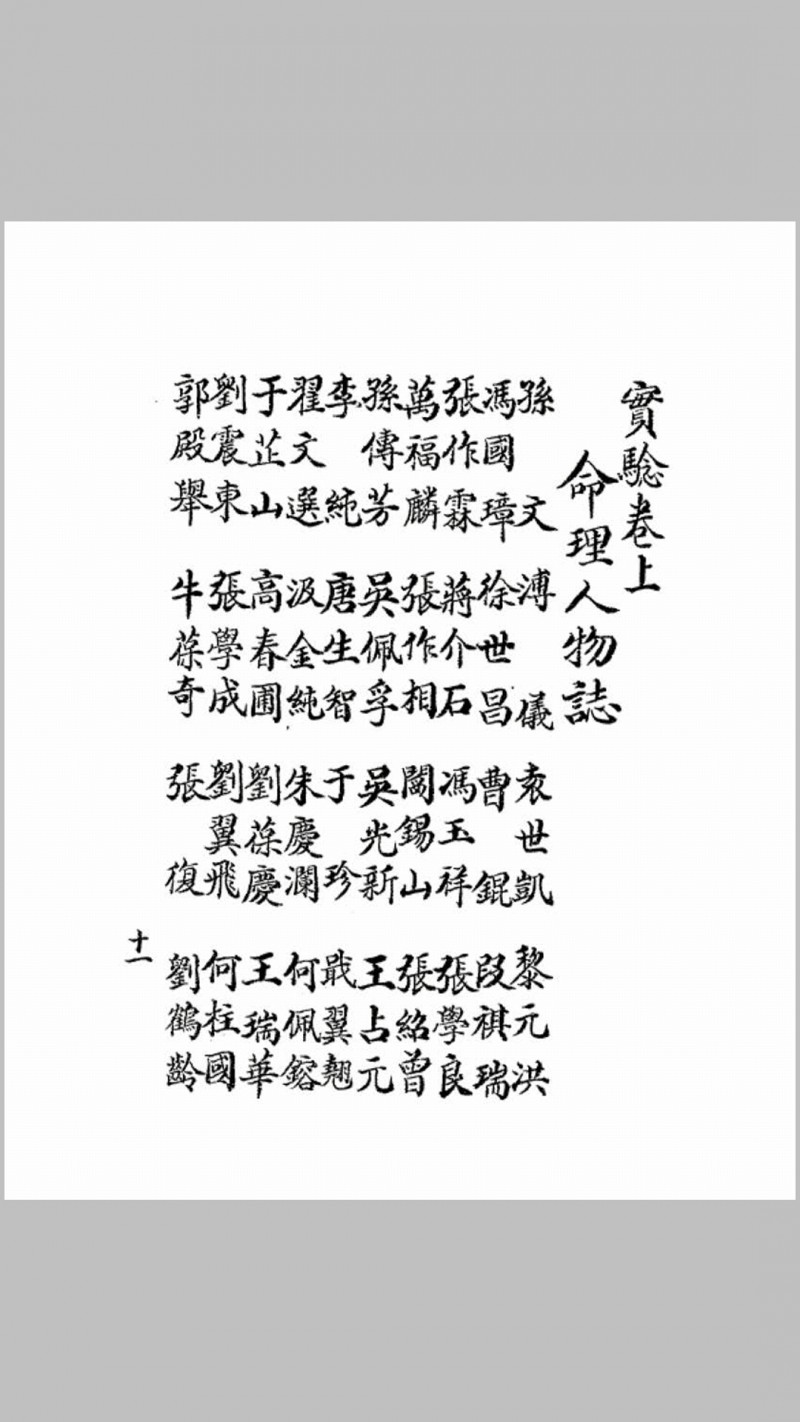 實騐卷上
命理人物誌
孫文 溥儀 袁世凱 黎元洪
馮國璋 徐世昌 曹錕 段祺瑞
張作霖 蔣介石 馮玉祥 張學良
萬福麟 張作相 閻錫山 張紹曾
孫傳芳 吳佩孚 吳光新 王占元
李純 唐生智 于珍 戢翼翹
翟文選 汲金純 朱慶瀾 何佩鎔
于芷山 高春圃 劉葆慶 王瑞華
劉震東 張學成 劉翼飛 何柱國
郭殿舉 牛葆奇 張復 劉鶴齡
十一